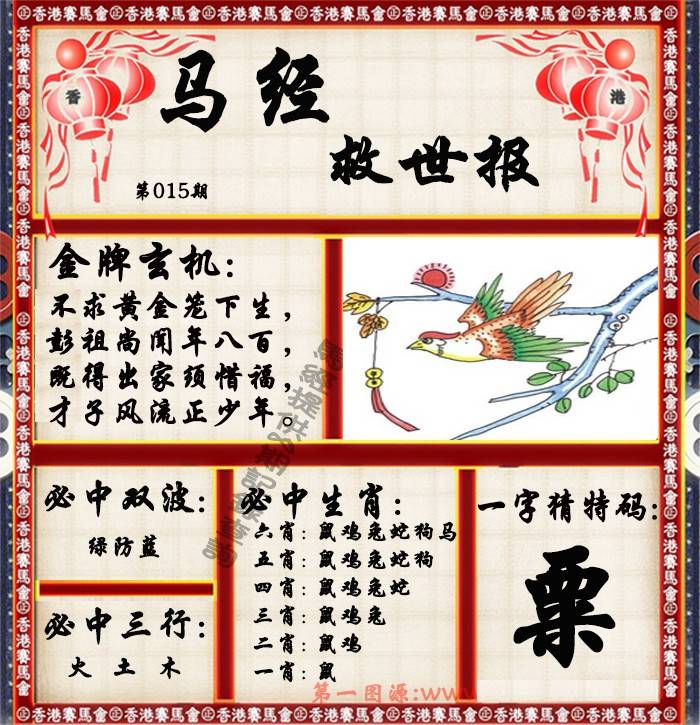 香港賽馬會
香
港
马经
救世报
第015期
金牌玄机:
不求黄金笼下生，
彭祖尚闻年八百，
既得出家须惜福，
才子风流正少年。
必中双波:
绿防蓝
必中三行:
火 土 木
必中生肖:
六肖: 鼠鸡兔蛇狗马
五肖: 鼠鸡兔蛇狗
四肖: 鼠鸡兔蛇
三肖: 鼠鸡兔
二肖: 鼠鸡
一肖: 鼠
一字猜特码:
粟
第一图源:www